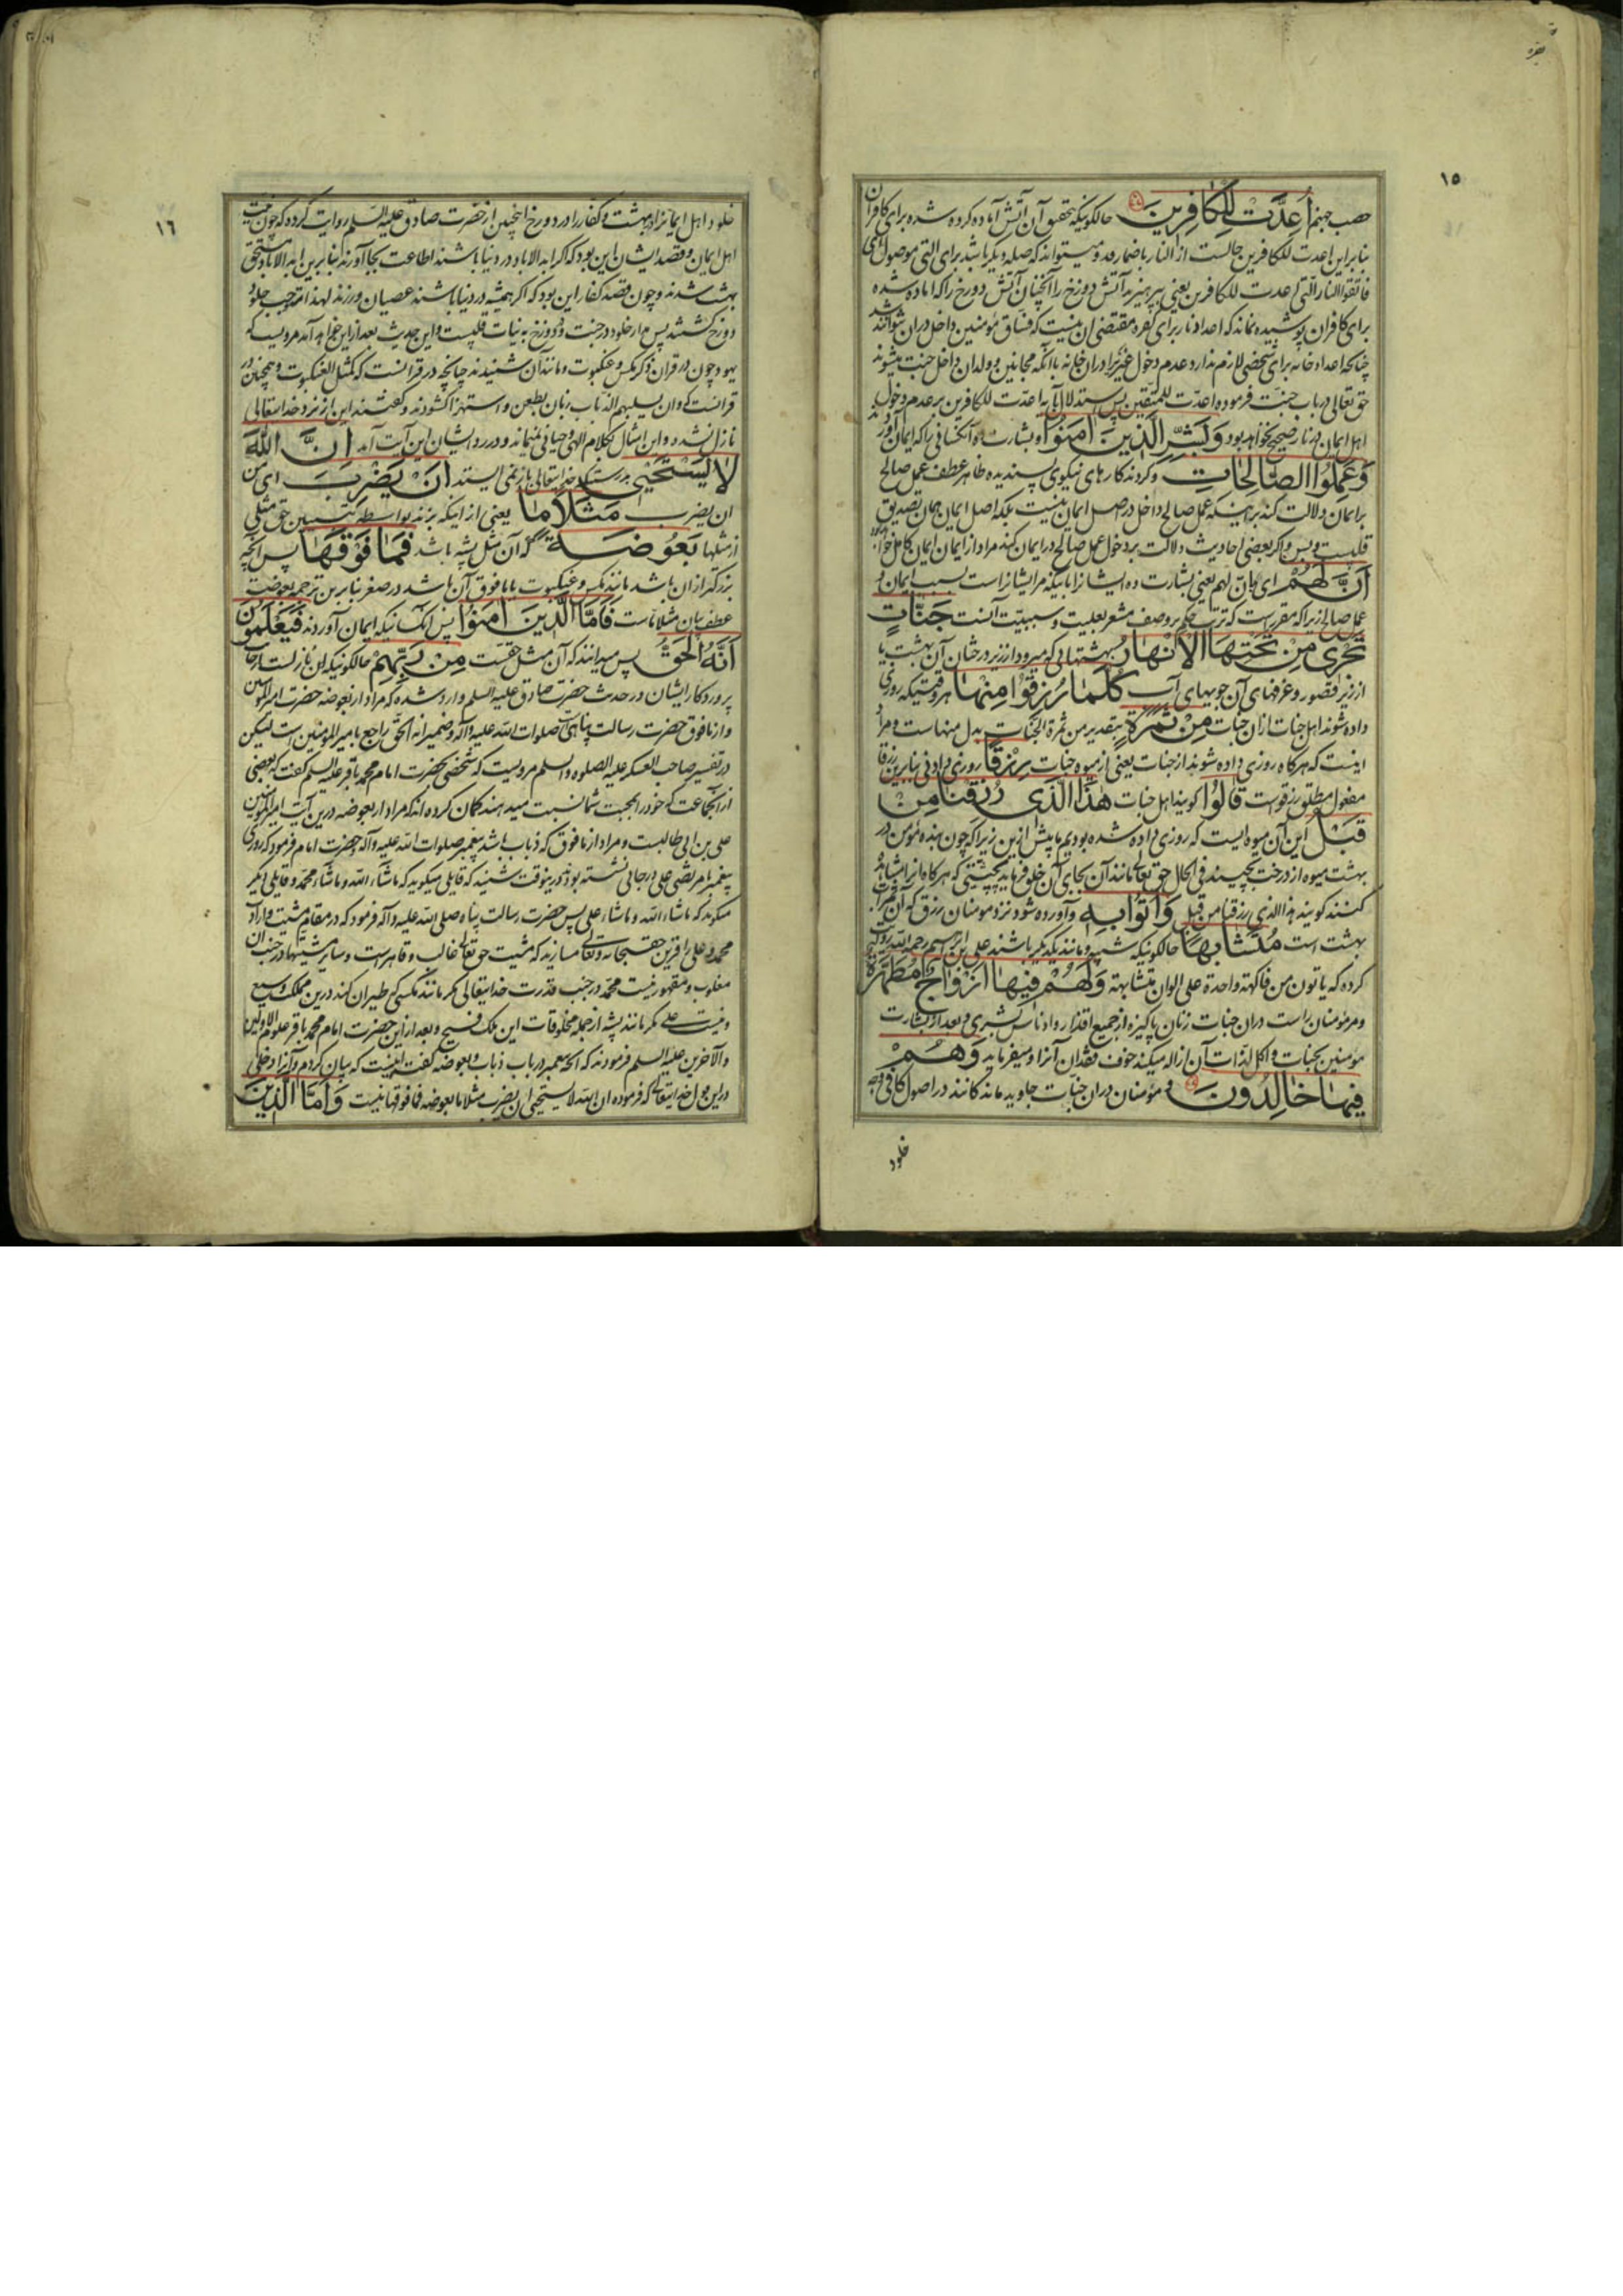 ١٥
حصب جهنم اُعِدَّتْ لِلْكافِرينَ حالكونیكه بتحقیق آن آتش آماده كرده شده برای كافران
بنابراین اعدت للكافرین حالست از النار باضمار قد و میتواند كه صله دیگر باشد برای التی موصول ای
فاتقوا النار التی اعدت للكافرین یعنی بپرهیزید آتش دوزخ را آنچنان آتش دوزخ را كه اماده شده
برای كافران پوشیده نماند كه اعداد نار برای كفره مقتضی ان نیست كه فساق مؤمنین داخل دران نتوانند شد
چنانچه اعداد خانه برای شخصی لازم ندارد عدم دخول غیر را دران خانه با آنكه مجانین و ولدان داخل جنت میشوند
حق تعالی در باب جنت فرموده اعدّت للمتقین پس استدلال بآیه اعدّت للكافرین بر عدم دخول
اهل ایمان در نار صحیح نخواهد بود وَبَشِّرِ الَّذينَ اٰمَنُوا و بشارت ده آنكسانی را كه ایمان آورده‌اند
وَعَمِلُوا الصّالِحاتِ و كردند كارهای نیكوی پسندیده ظاهر عطف عمل صالح
بر ایمان دلالت كند بر اینكه عمل صالح داخل در اصل ایمان نیست بلكه اصل ایمان همان تصدیق
قلبیست و بس و اگر بعضی احادیث دلالت بر دخول عمل صالح در ایمان كند مراد از ایمان ایمان كامل خواهد بود
اَنَّ لَهُمْ ای بانّ لهم یعنی بشارت ده ایشانرا باینكه مر ایشانراست بسبب ایمان و
عمل صالح زیرا كه مقررست كه ترتب حكم بر وصف مشعر بعلیت و سببیّت آنست جَنّاتٍ
تَجْرى مِنْ تَحْتِهَا الْاَنْهارُ بهشتهائی كه میرود از زیر درختان آن بهشت یا
از زیر قصور و غرفهای آن جویهای آب كُلَّما رُزِقُوا مِنْها هر وقتیكه روزی
داده شوند اهل جنات ازان جنات مِنْ ثَمَرَةٍ بتقدیر من ثمرة الجنات بدل منهاست و مراد
اینست كه هر كاه روزی داده شوند از جنات یعنی از میوه جنات رِزْقًا روزی دادنی بنابرین رزقا
مفعول مطلق رزقوست قالُوا گویند اهل جنات هٰذَا الَّذى رُزِقْنا مِنْ
قَبْلُ این آن میوه ایست كه روزی داده شده بودیم ما پیش ازین زیرا كه چون بنده مؤمن در
بهشت میوه از درخت بچیند فی الحال حق تعالی مانند آن بجای آن خلق فرماید بحیثیتی كه هر كاه انرا مشاهده
كنند گویند هذا الذی رزقنا من قبل وَاُتُوا بِه و آورده شود نزد مومنان رزق كه آن ثمرات
بهشت است مُتَشابِهًا حالكونیكه شبیه و مانند یكدیگر باشند علی بن ابراهیم رحمه الله روایت
كرده كه یاتون من فاكهة واحدة علی الوان متشابهة وَلَهُمْ فيها اَزْواجٌ مُطَهَّرَةٌ
و مر مومنان راست دران جنات زنان پاكیزه از جمیع اقذار و ادناس بشری و بعد از بشارت
مومنین بجنات و اكل لذات آن ازاله میكند خوف فقدان آنرا و میفرماید وَهُمْ
فيها خالِدُونَ و مؤمنان دران جنّات جاوید ماندگانند در اصول كافی وجه
خلود
١٦
خلود اهل ایمانرا در بهشت و كفار را در دوزخ اینچنین از حضرت صادق علیه السلم روایت كرده كه چون نیت
اهل ایمان و قصد ایشان این بود كه اگر ابد الاباد در دنیا باشند اطاعت بجا آورند بنابرین ابد الاباد مستحق
بهشت شدند و چون قصد كفار این بود كه اگر همیشه در دنیا باشند عصیان ورزند لهذا مستوجب خلود
دوزخ گشتند پس مدار خلود در جنت و دوزخ به نیات قلبیست و این حدیث بعد ازین خواهد آمد مرویست كه
یهود چون در قران ذكر مگس و عنكبوت و مانند آن شنیدند چنانچه در قرانست كه كمثل العنكبوت و همچنین در
قرانست كه وان یسلبهم الذباب زبان بطعن و استهزا گشودند و گفتند این از نزد خدایتعالی
نازل نشده و این امثال بكلام الهی و حیانی نمیماند و در رد ایشان این آیت آمد اِنَّ اللّٰهَ
لا يَسْتَحْيى بدرستیكه خدایتعالی باز نمی ایستد اَنْ يَضْرِبَ ای من
ان یضرب مَثَلًا ما یعنی از اینكه بزند بواسطه تبیین حق مثلی
از مثلها بَعُوضَةً كه آن مثل پشه باشد فَما فَوْقَها پس آنچه
بزرگتر ازان باشد مانند مگس و عنكبوت یا ما فوق آن باشد در صغر بنابرین ترجمه بعوضة
عطف بیان مثلاماست فَاَمَّا الَّذينَ اٰمَنُوا پس آنكسانیكه ایمان آوردند فَيَعْلَمُونَ
اَنَّهُ الْحَقُّ پس میدانند كه آن مثل حقّست مِنْ رَبِّهِمْ حالكونیكه نازلست از جانب
پروردكار ایشان در حدیث حضرت صادق علیه السلم وارد شده كه مراد از بعوضه حضرت امیر المؤمنین
و از ما فوق حضرت رسالت پناهی صلوات الله علیه و آله و ضمیر انه الحق راجع بامیر المؤمنین است لیكن
در تفسیر صاحب العسكر علیه الصلوه والسلم مرویست كه شخصی بحضرت امام محمد باقر علیه السلم گفت كه بعضی
از آنجماعت كه خود را بمحبت شما نسبت میدهند كمان كرده اند كه مراد از بعوضه درین آیت امیر المؤمنین
علی بن ابی طالبست و مراد از ما فوق كه ذباب باشد پیغمبر صلوات الله علیه و آله و حضرت امام فرمود كه روزی
پیغمبر با مرتضی علی در جائی نشسته بود درینوقت شنید كه قایلی میكوید كه ماشاء الله و ماشاء محمد و قایلی دیگر
میكوید كه ماشاء الله و ماشاء علی پس حضرت رسالت پناه صلی الله علیه و آله فرمود كه در مقام مشیت و اراده
محمد و علی را قرین حقسبحانه و تعالی مسازید كه مشیت حق تعالی غالب و قاهرست و سایر مشیتها در جنب ان
مغلوب و مقهور نیست محمد در جنب قدرت خدایتعالی مگر مانند مگسی كه طیران كند درین مملكت وسیع
و نیست علی مگر مانند پشه از جمله مخلوقات این ملك فسیح و بعد ازاین حضرت امام محمد باقر علوم الاولین
والآخرین علیه السلم فرمودند كه آنچه پیغمبر در باب ذباب و بعوضه گفت اینست كه بیان كردم و آنرا دخلی
درین قول خدایتعالی كه فرموده ان الله لا یستحیی ان یضرب مثلا ما بعوضة فما فوقها نیست وَاَمَّا الَّذينَ